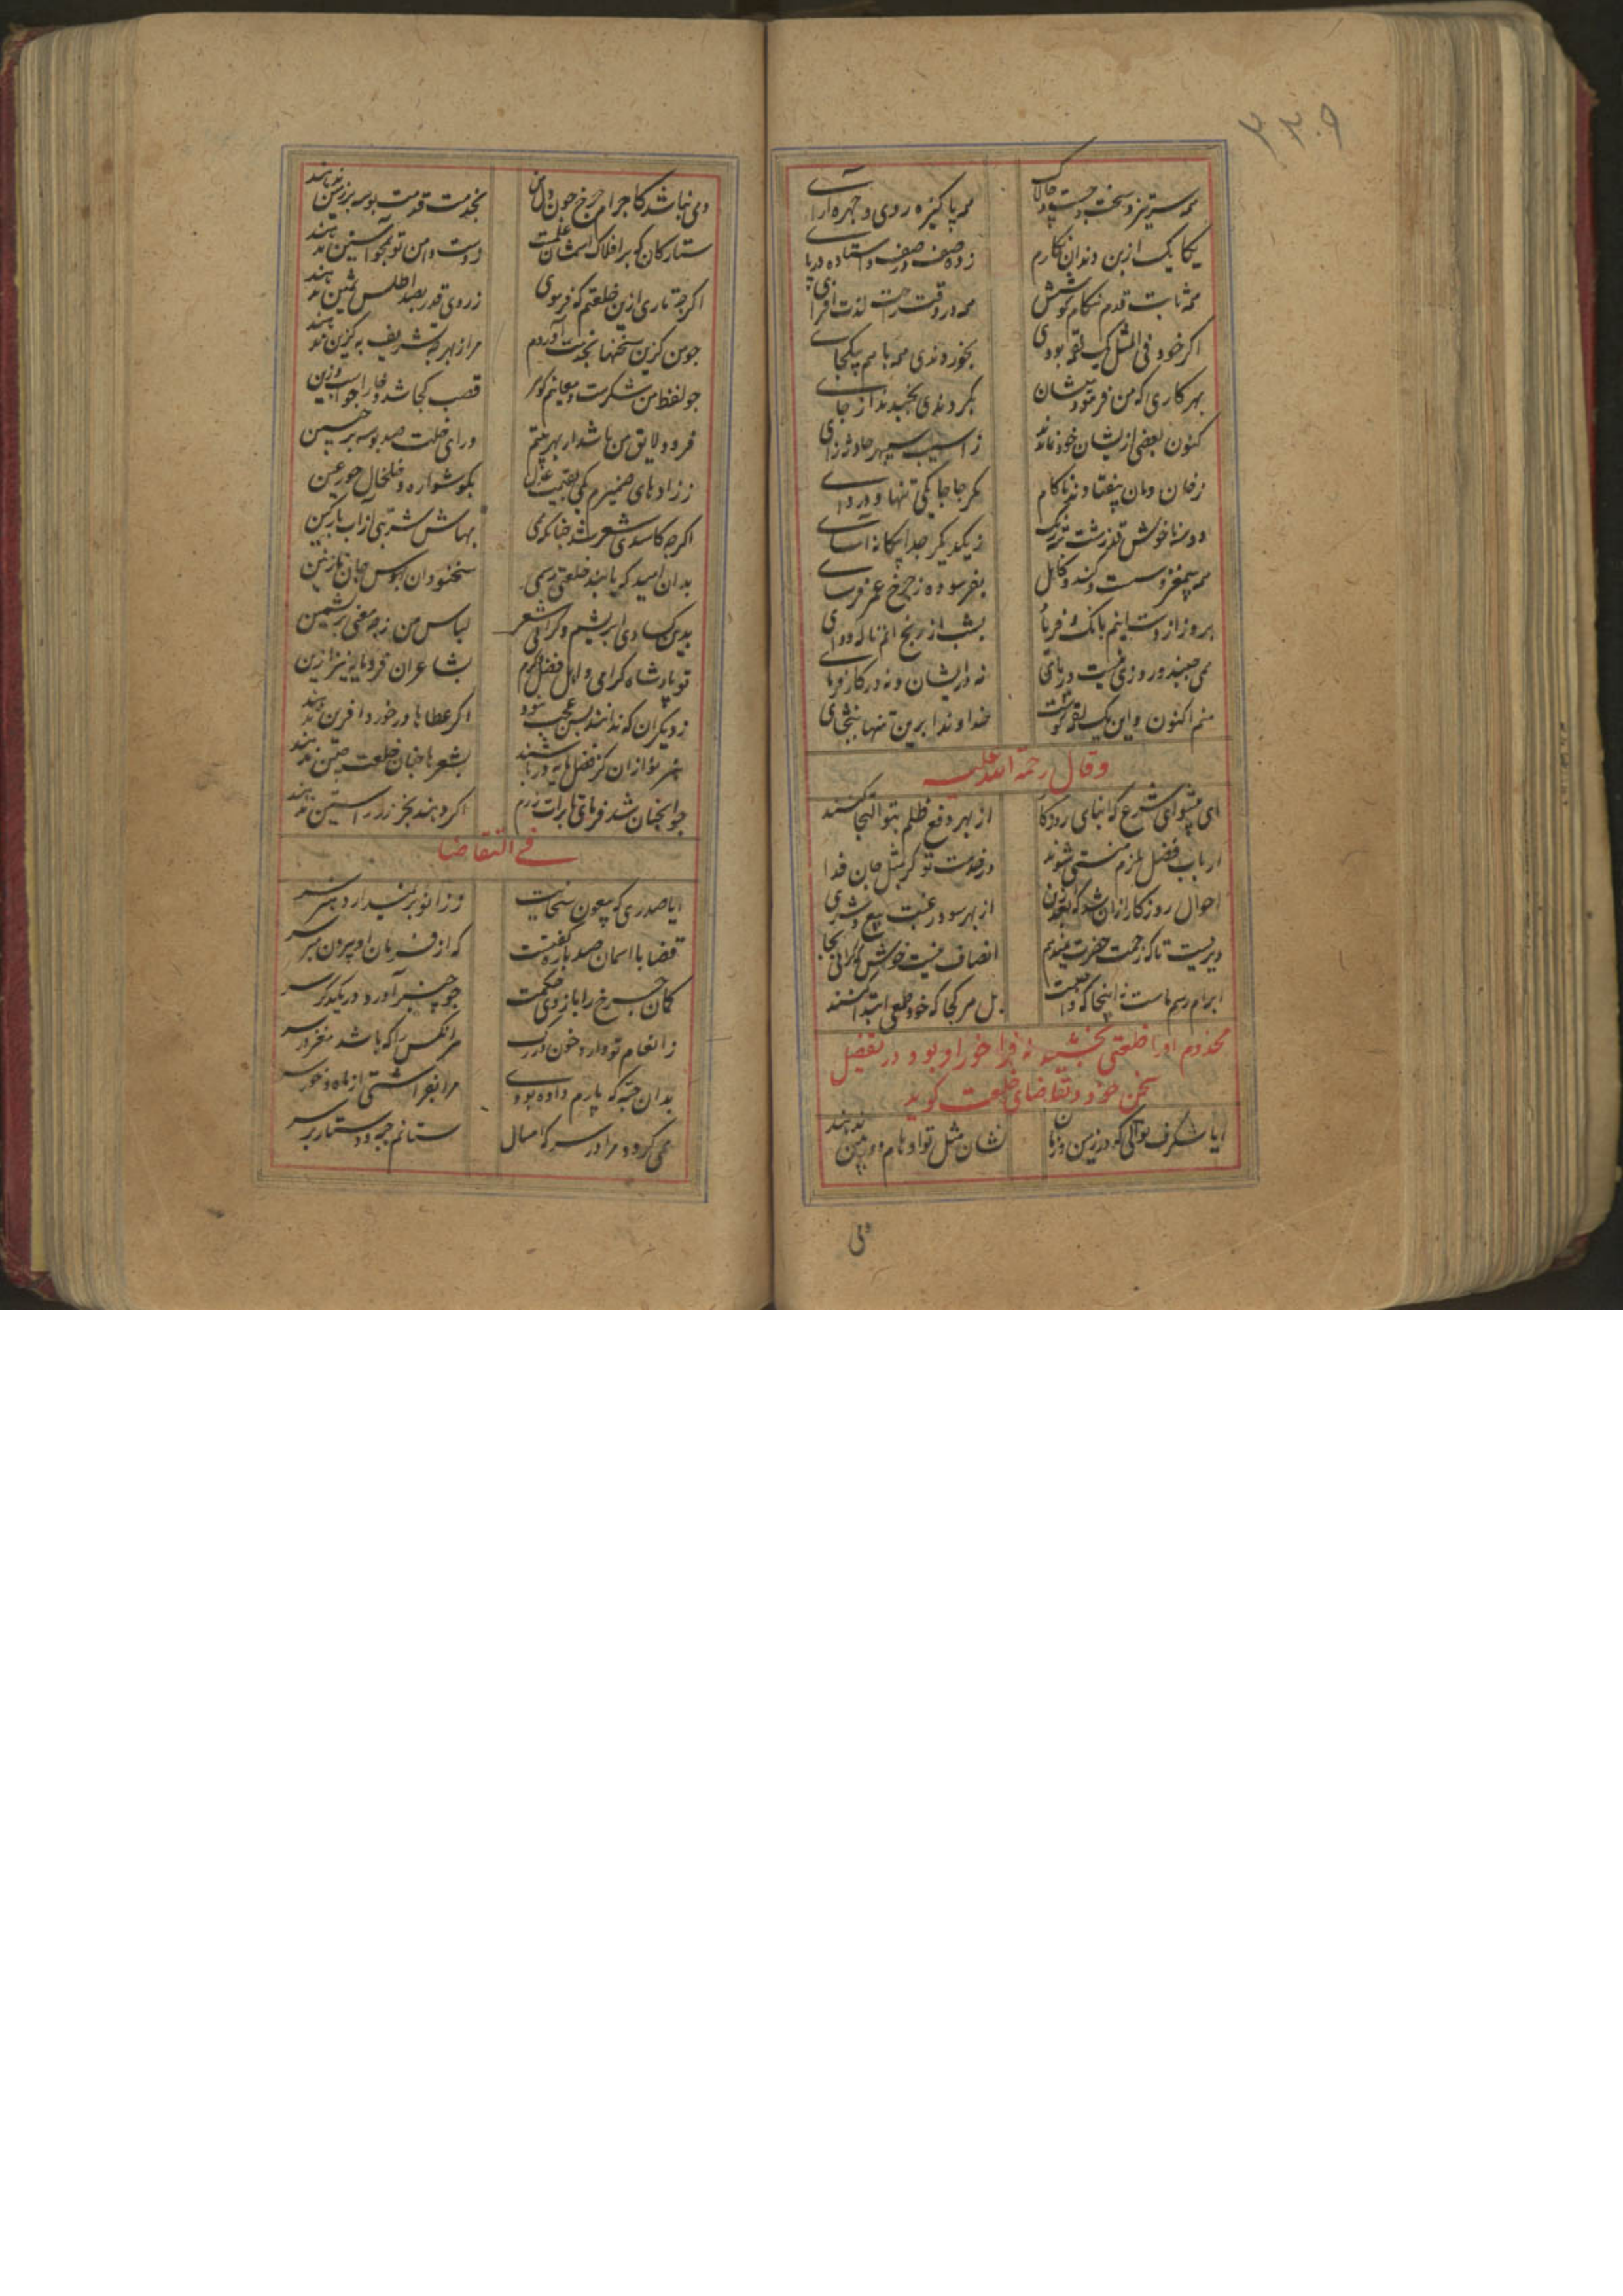 ۳۳۰۹
همه سرتیز و سخت و چست و چالاک همه پاکیزه روی و چهره آرای
یکایک از بن دندان بکارم زده صف در صف و استاده در پای
همه ثابت قدم هنگام کوشش همه در وقت راحت لذت افزای
اکر خود فی المثل یک لقمه بودی بخوردندی همه با هم بیکجای
بهر کاری که من فرمودمیشان بکردندی نجنبیدند از جای
کنون بعضی ازیشان خود نماندند ز آسیب سپهر حادثه زای
ز خان ومان بیفتادند ناکام مکر جاجا یکی تنها و دروای
ز یکدیکر جدا بیکانه آسای
همه بیمغز و سست و کند و کاهل بفرسوده ز چرخ عمر فرسای
بروز از دست اینم بانک و فریاد بشب از رنج آنم ناله و وای
همی جنبند و روزی نیست در پای نه در ایشان و نه در کارفرمای
منم اکنون و این یک لقمه کوشت خداوندا برین تنها ببخشای
وقال رحمة الله علیه
ای پیشوای شرع که ابنای روزکار از بهر دفع ظلم بتو التجا کنند
ارباب فضل ملزم منت شوند در خدمت تو کر بمثل جان فدا
احوال روزکار ازان شد که بعد ازین از بهر سود رغبت بیع و شری
دیریست تا که زحمت حضرت نمیدهم انصاف نیست خوش کرانی بجا
ابرام رسم ماست نه اینجا که واجبست بل هر کجا که خود طمعی ابتدا کنند
مخدوم او را خلعتی بخشید نه فراخور او بود در تفضیل
سخن خود و تقاضای خلعت کوید
ایا شکرف نوالی که در زمین و زمان نشان مثل تو اوهام دوربین ندهند
دمی
دمی نباشد کاجرام چرخ چون دل من بخدمت قدمت بوسه بر زمین ندهند
ستارکان که بر افلاک آستان علمت ز دست دامن تو همچو آستین ندهند
اکرچه تاری ازین خلعتم که فرمودی ز روی قدر بصد اطلس ثمین ندهند
چو من کزین سخنها بخدمت آوردم مرا ز بهر چه تشریف به کزین ندهند
چو لفظ من شکرست و معانیم کوهر قصب کجا شد و خارا جواب این
فرود لایق من باشد ار بهر بیتم ورای خلعت صد بوسه بر جبین
ز زادهای ضمیرم یکی بقیمت عدل بکوشواره و خلخال حور عین
اکرچه کاسدی شعر شد چنانکه همی بهاش شربتی از آب پارکین
بدان امید که یابند خلعتی ز سخنوران بهوس جان نازنین
بدین کسادی ابریشم و کرانی شعر لباس من ز چه معنی بریشمین
تو پادشاه کرامی و اهل فضل و کرم بشاعران فرومایه نیز ازین
ز دیکران که ندانند بس عجب نبود اکر عطاها در خورد آفرین ندهند
هنر نوازان کز فضل مایه ور باشند بشعرها چنان خلعت چنین ندهند
چو آنچنان شد فرمای تا برات زرم اکر دهند بجز زر راستین ندهند
فی التقاضا
ایا صدری که بی عون سخایت ز زانو بر نمیدارد هنر سر
قضا با آسمان صد باره کفتست که از فرمان او بیرون مبر سر
کمان چرخ را بازوی حکمت چو چنبر آورد در یکدکر سر
ز انعام تو دارد خون در رک هر آنکس را که باشد مغز در سر
بدان جبه که پارم داده بودی مرا بفراشتی از ماه و خور سر
همی کردد مرا در سر که امسال ستانم جبه و دستار بر سر